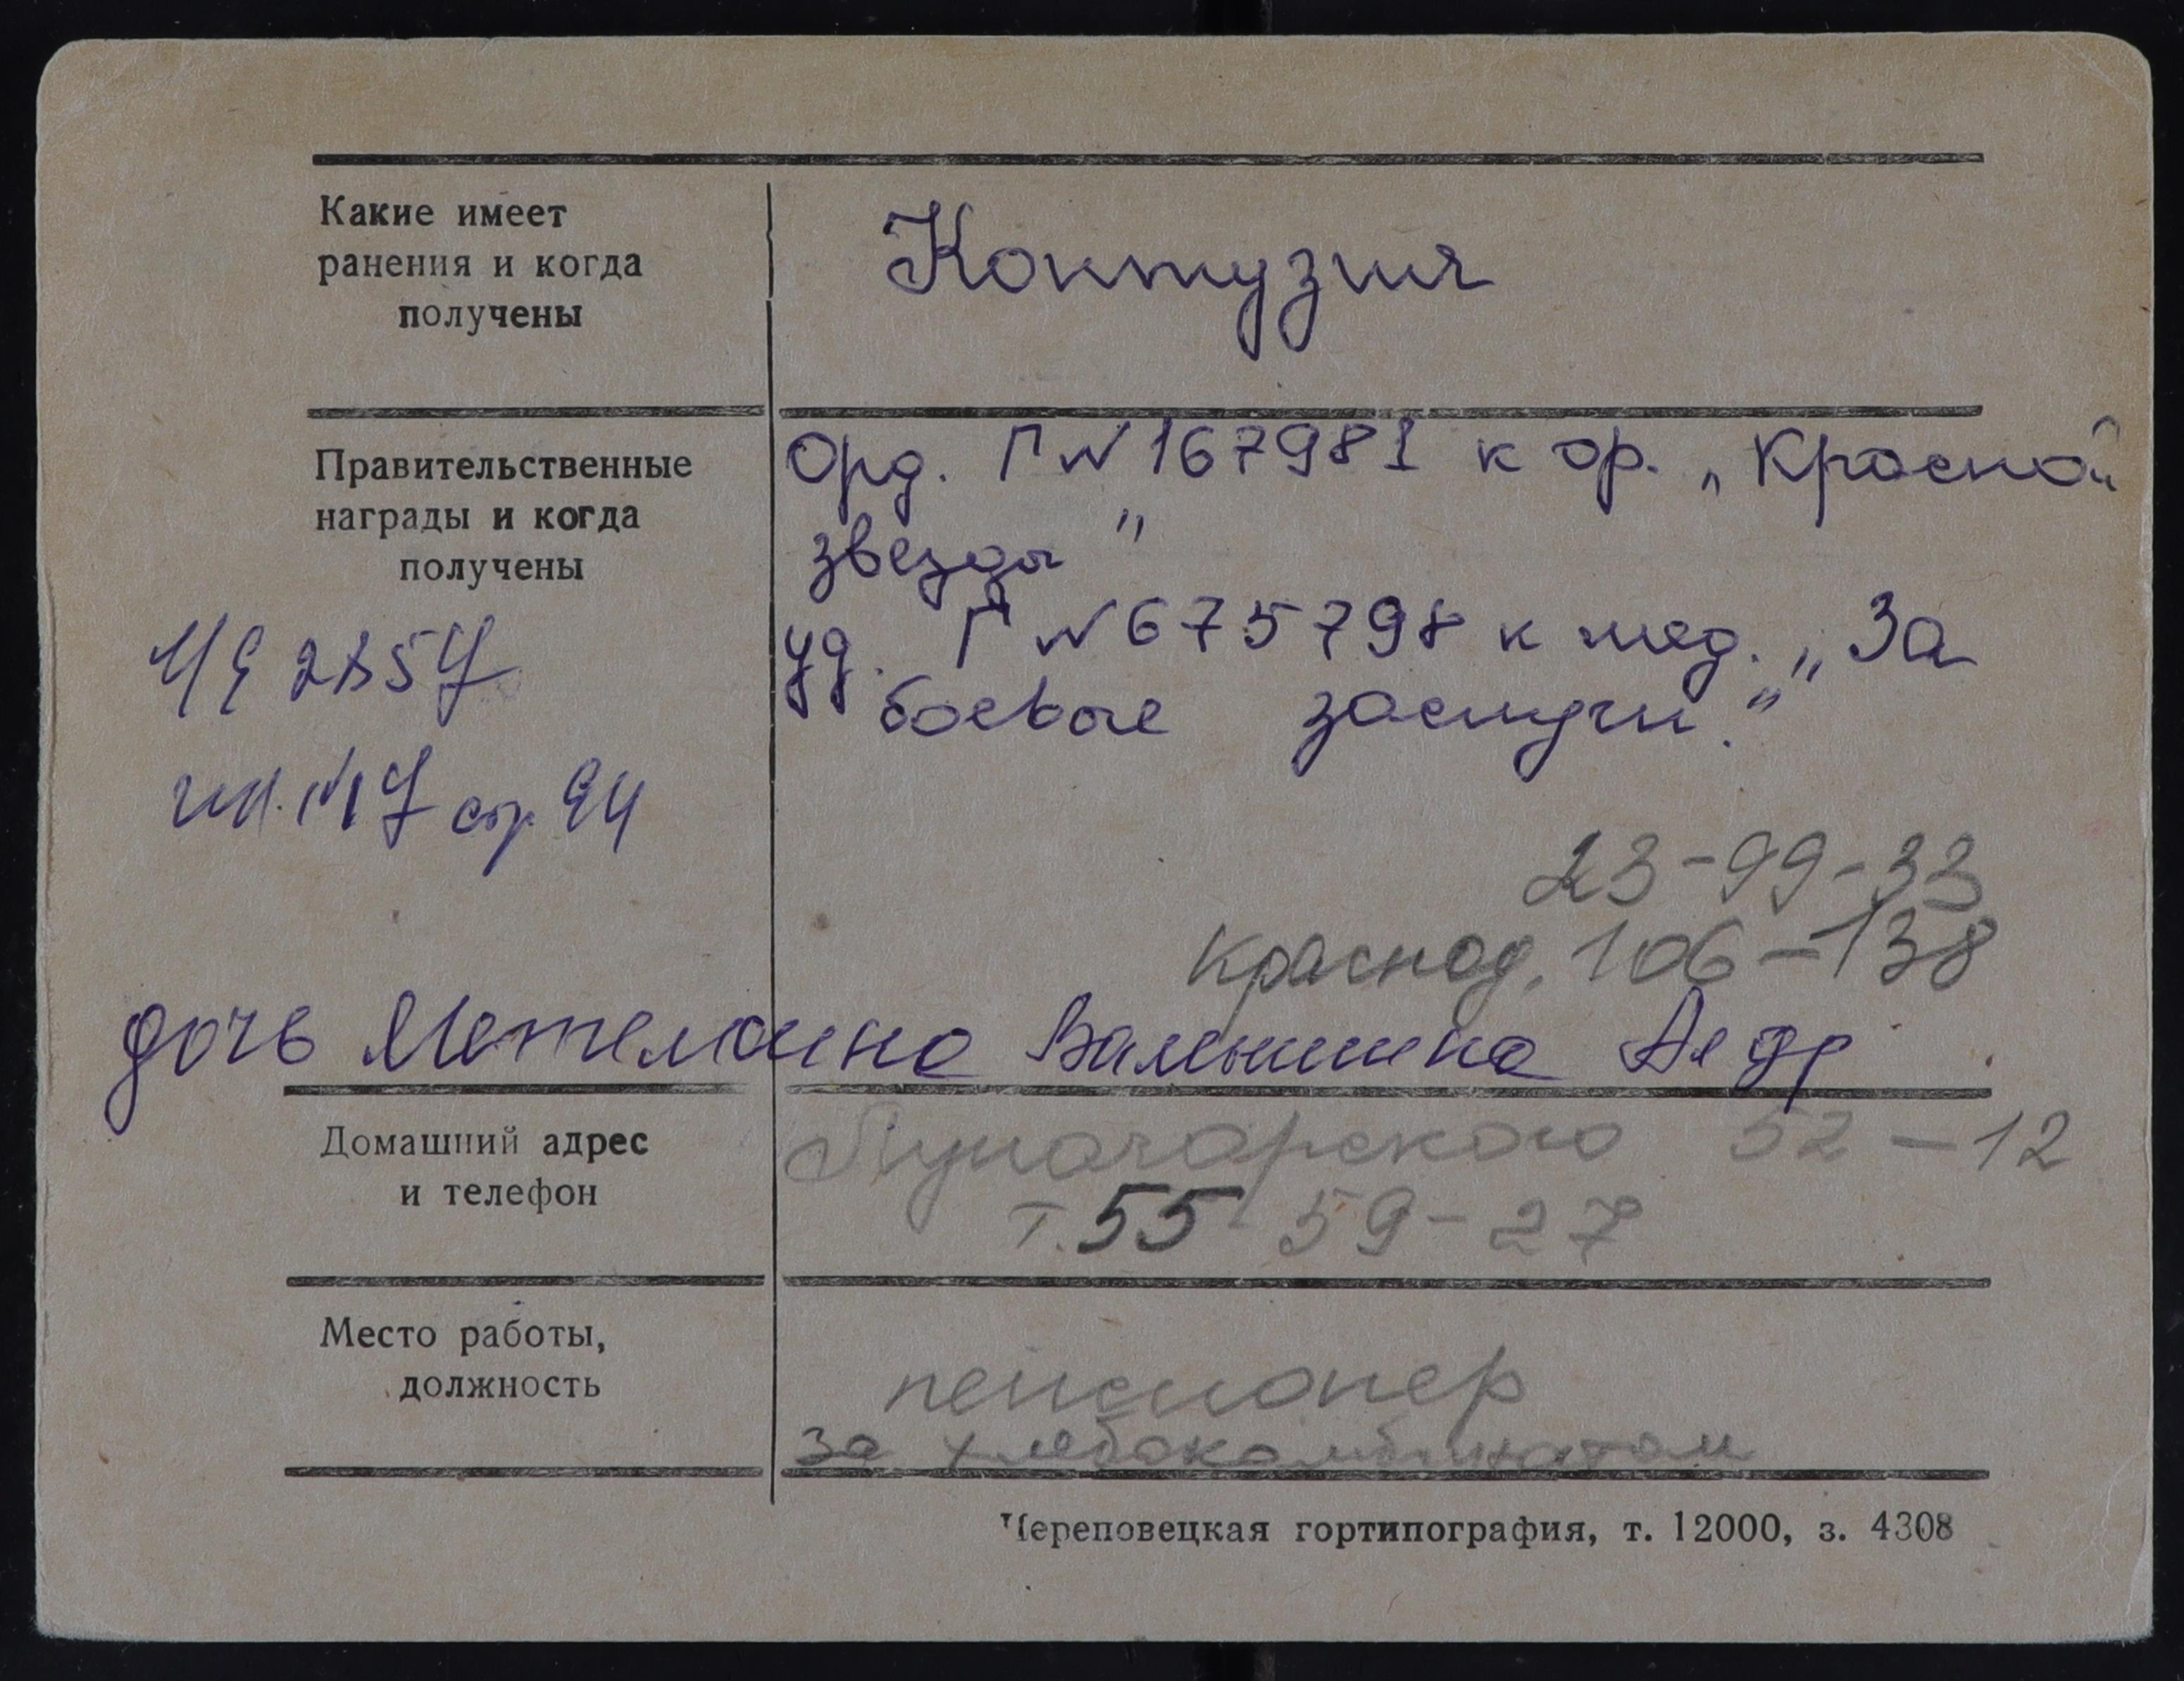 Какие имеет
ранения и когда
получены
Контузия
Правительственные
награды и когда
получены
Орд. Г № 167981 к ор. „Красной
звезды"
уд. Г № 675798 к мед. „За
боевые заслуги."
стр. 94
23-99-33
Краснод. 106-138
дочь Метелкина Валентина
Домашний адрес
и телефон
Луначарского 52-12
т. 55 59-27
Место работы,
должность
пенсионер
за хлебокомбинатом
Череповецкая гортипография, т. 12000, з. 4308